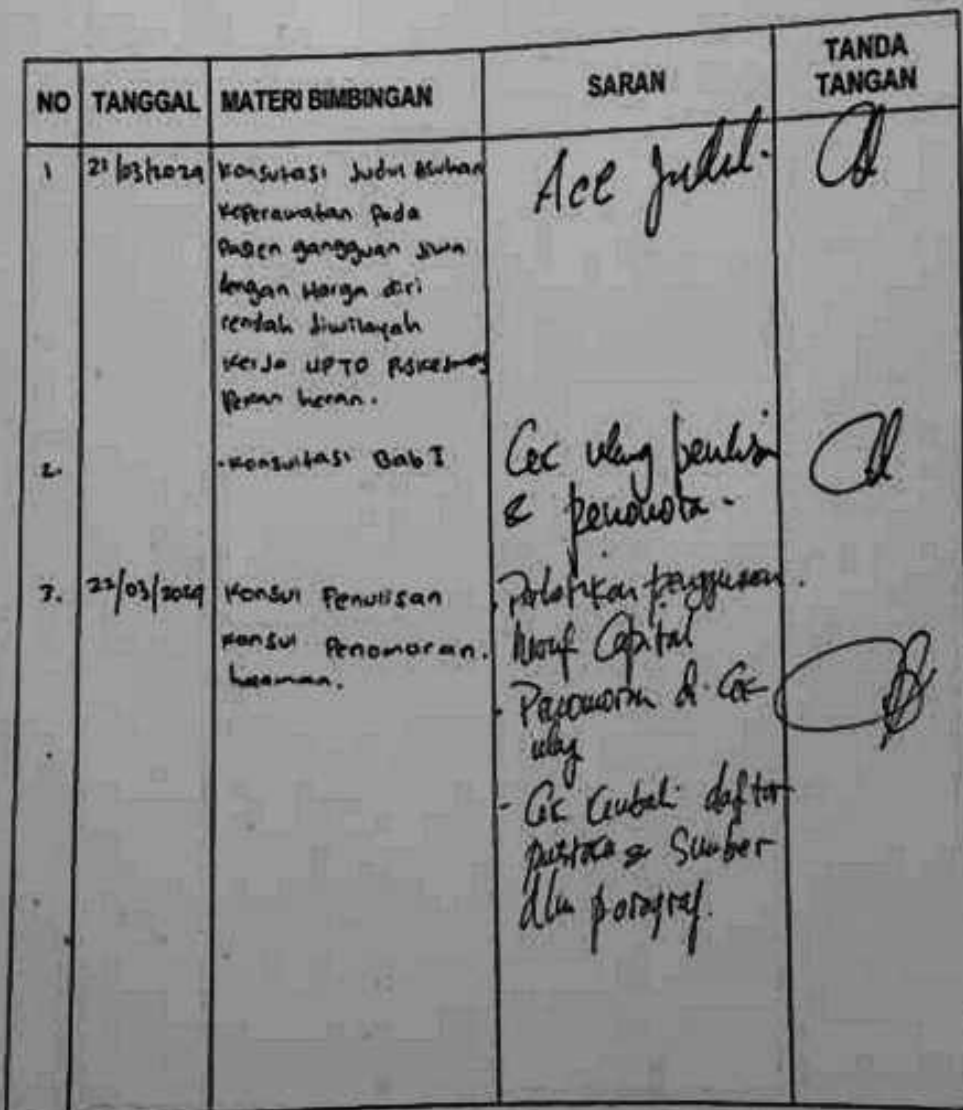 NO TANGGAL MATERI BIMBINGAN SARAN TANDA TANGAN
1 21/03/2024 Konsultasi Judul Asuhan
Keperawatan Pada
Pasien gangguan Jiwa
dengan Harga diri
rendah diwilayah
Kerja UPTD Puskesmas
Pekan heran.
Acc Judul.
2. - Konsultasi Bab I
Cec ulang penulisan
&
3. 22/03/2024 Konsul Penulisan
Konsul Penomoran.
halaman.
Perhatikan penggunaan
Huruf Capital
- Penomoran di Cek
ulang
- Cek kembali daftar
pustaka & Sumber
dlm paragraf.